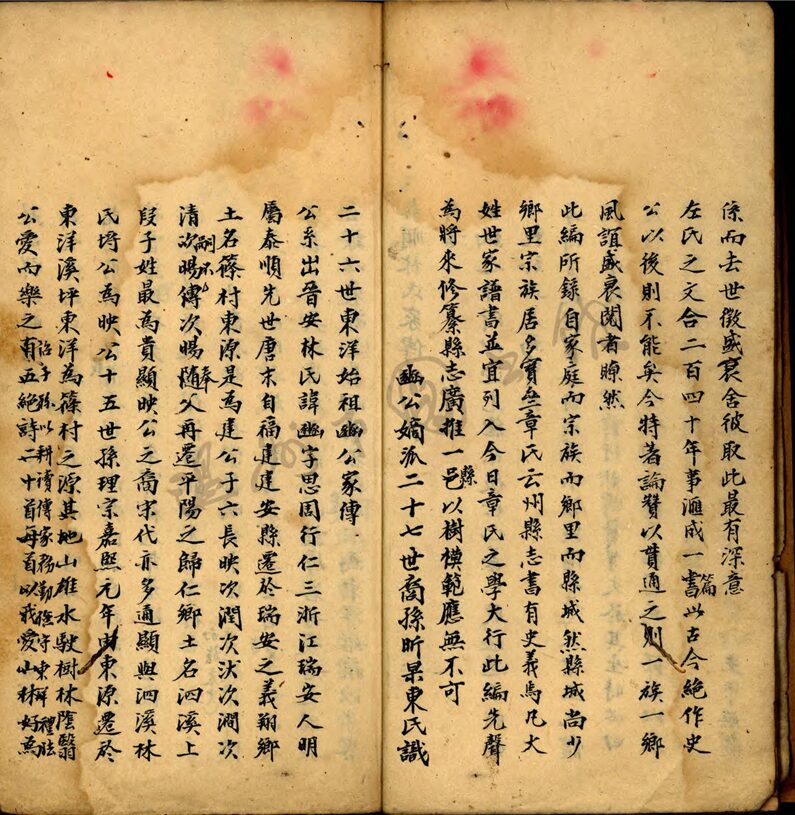 係而去世徵盛衰舍彼取此最有深意
左氏之文合二百四十年事滙成一書篇以古今絕作史
公以後則不能矣今特著論贊以貫通之則一族一鄉
風誼盛衰閱者瞭然
此編所錄自家庭而宗族而鄉里而縣城然縣城尚少
鄉里宗族居多實無章氏云州縣志書有史義焉凡大
姓世家譜書並宜列入今日章氏之學大行此編先聲
為將來修纂縣志廣推一邑縣以樹模範應無不可
幽公嫡派二十七世裔孫昕杲東氏識
二十六世東洋始祖幽公家傳
公系出晉安林氏諱幽字思周行仁三浙江瑞安人明
屬泰順先世唐末自福建建安縣遷於瑞安之義翔鄉
土名篠村東源是為建公子六長映次潤次汱次澗次
清次暘傳次暘隨奉父再遷平陽之歸仁鄉土名泗溪上
段子姓最為貴顯映公之裔宋代亦多通顯與泗溪林
氏埒公為映公十五世孫理宗嘉熙元年由東源遷於
東洋溪坪東洋為篠村之源其地山雄水駛樹林陰翳
公愛而樂之有五絕詩二十首每首以我愛山林好為
詒子孫以耕讀傳家務勤儉守東洋禮法